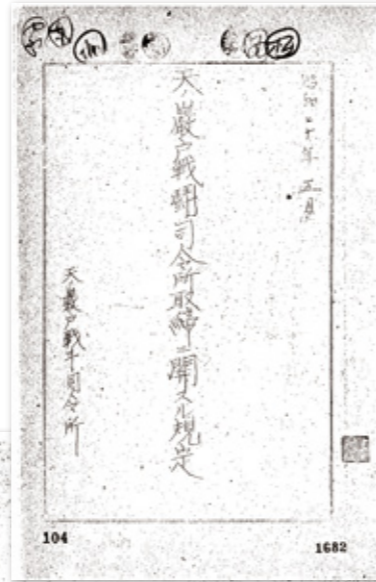 昭和二十年五月
天ノ巌戸戦闘司令所取締ニ関スル規定
天ノ巌戸戦斗司令所
104
1682